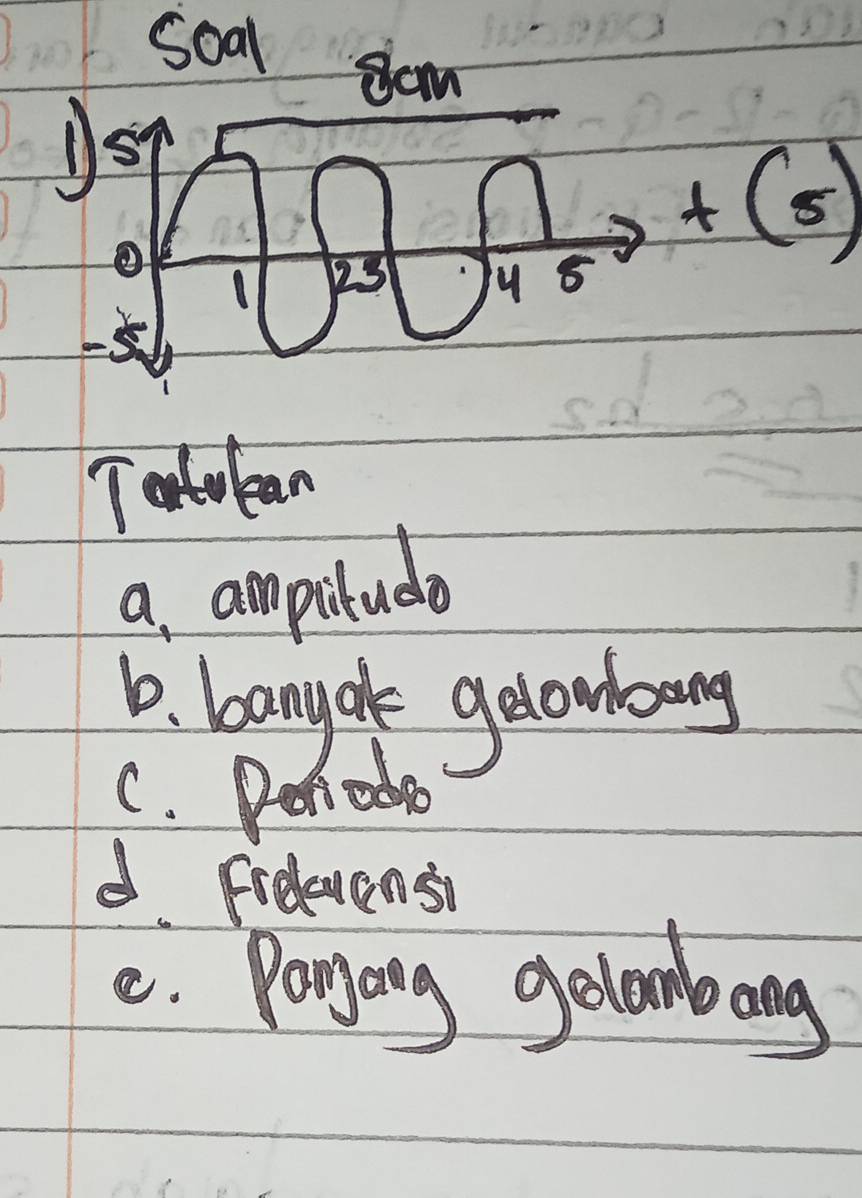 Soal
8cm
1) 5
t (s)
0
1 2 3 4 5
-5
Tentukan
a. amplitudo
b. banyak gelombang
c. Periode
d. Frekuensi
e. Panjang gelombang